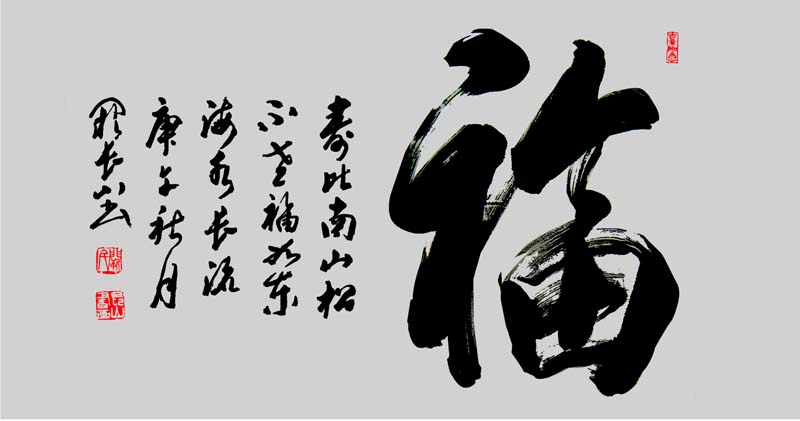 福
寿比南山松
不老福如东
海水长流
庚午秋月
长山书